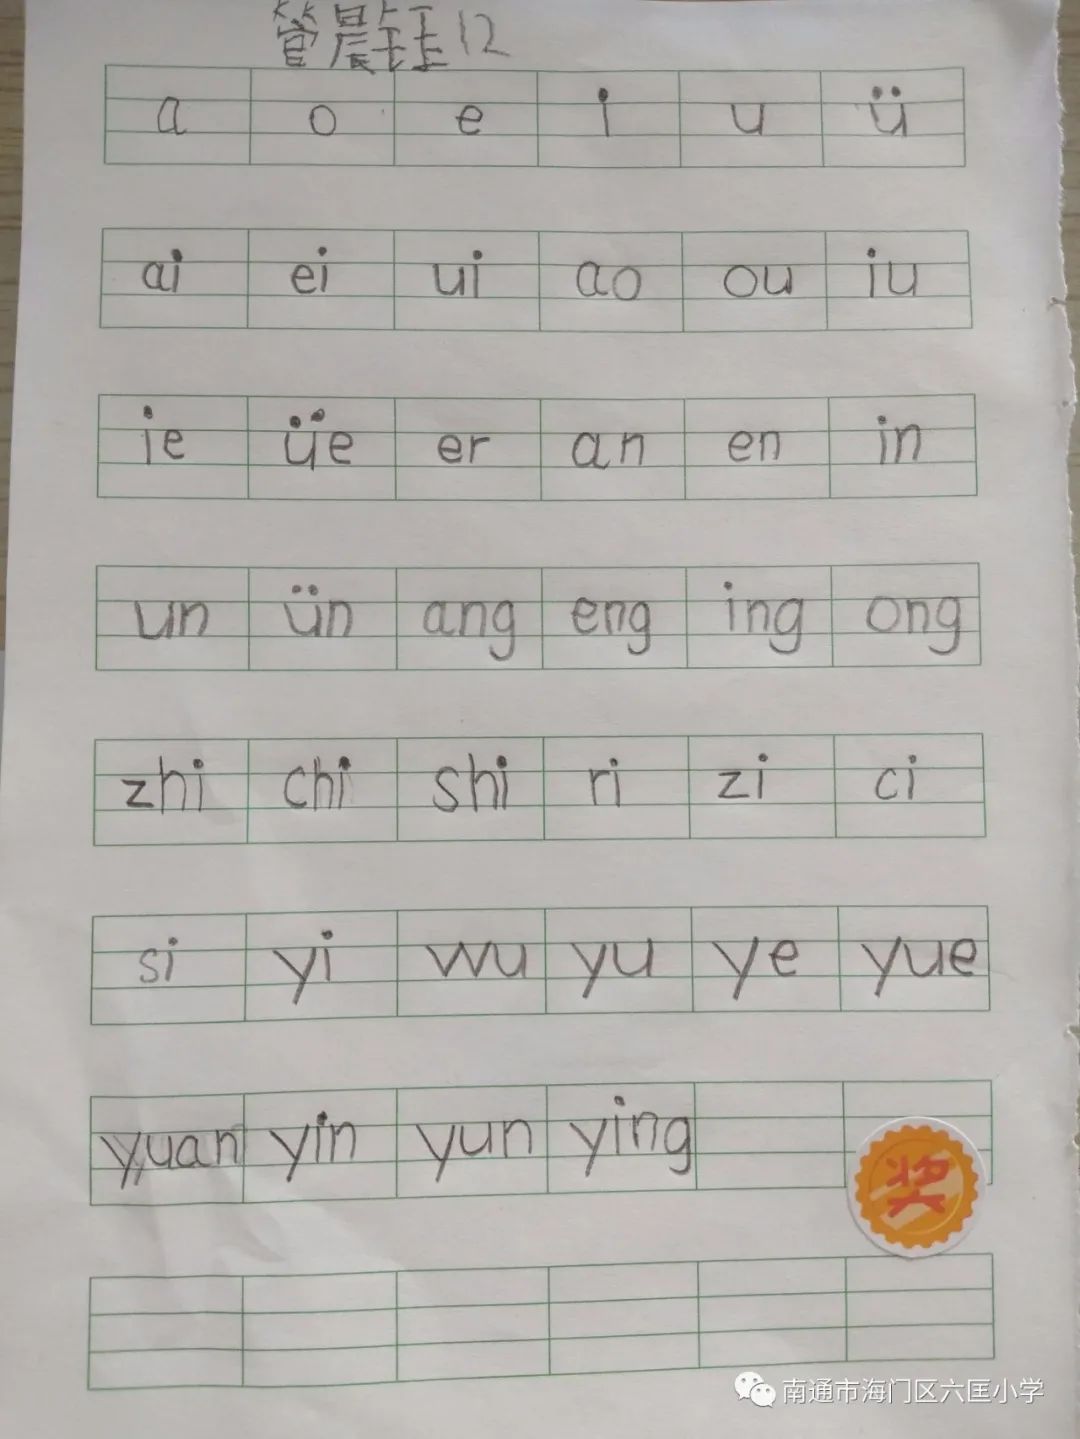 管晨钰 12
a o e i u ü
ai ei ui ao ou iu
ie üe er an en in
un ün ang eng ing ong
zhi chi shi ri zi ci
si yi wu yu ye yue
yuan yin yun ying
奖
南通市海门区六匡小学